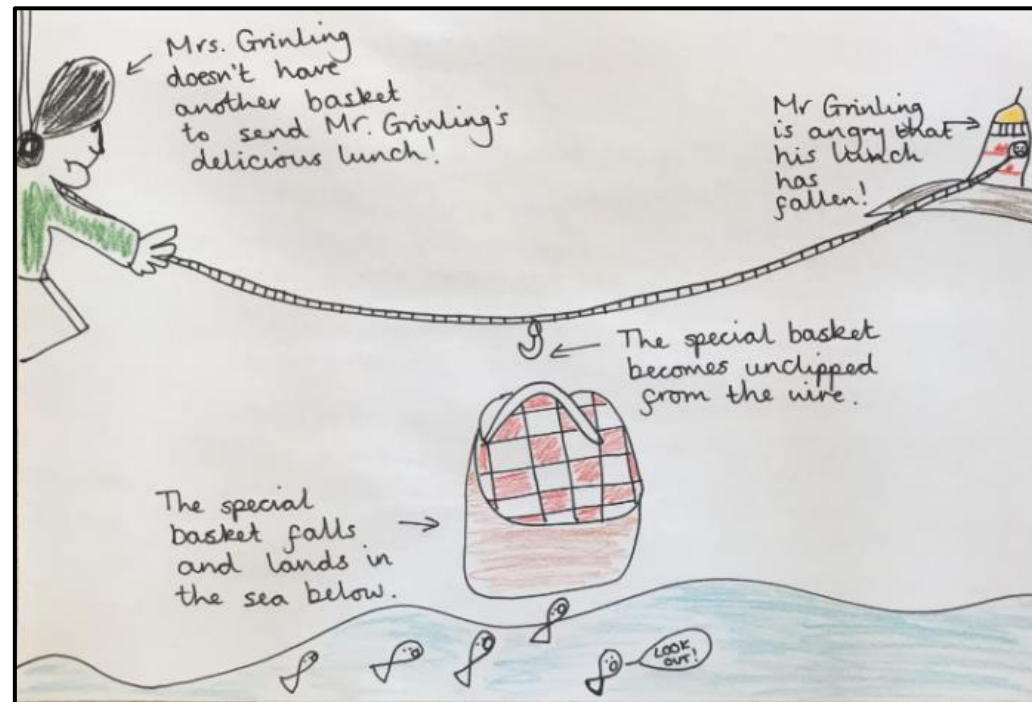 Mrs. Grinling
doesn't have
another basket
to send Mr. Grinling's
delicious lunch!
Mr Grinling
is angry that
his lunch
has
fallen!
The special basket
becomes unclipped
from the wire.
The special
basket falls
and lands in
the sea below.
LOOK
OUT!